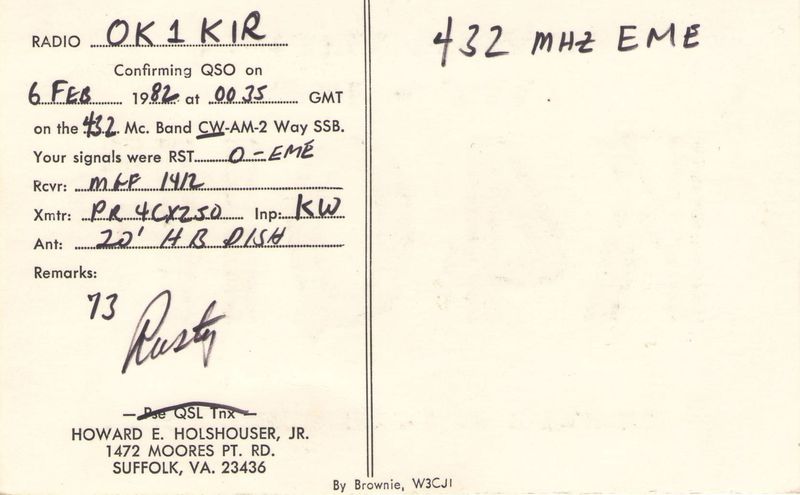 RADIO OK1KIR
432 MHZ EME
Confirming QSO on
6 FEB 1982 at 0035 GMT
on the 432 Mc. Band CW-AM-2 Way SSB.
Your signals were RST O-EME
Rcvr: MGF 1412
Xmtr: PR 4CX250 Inp: KW
Ant: 20' HB DISH
Remarks:
73
Rusty
— Pse QSL Tnx —
HOWARD E. HOLSHOUSER, JR.
1472 MOORES PT. RD.
SUFFOLK, VA. 23436
By Brownie, W3CJI